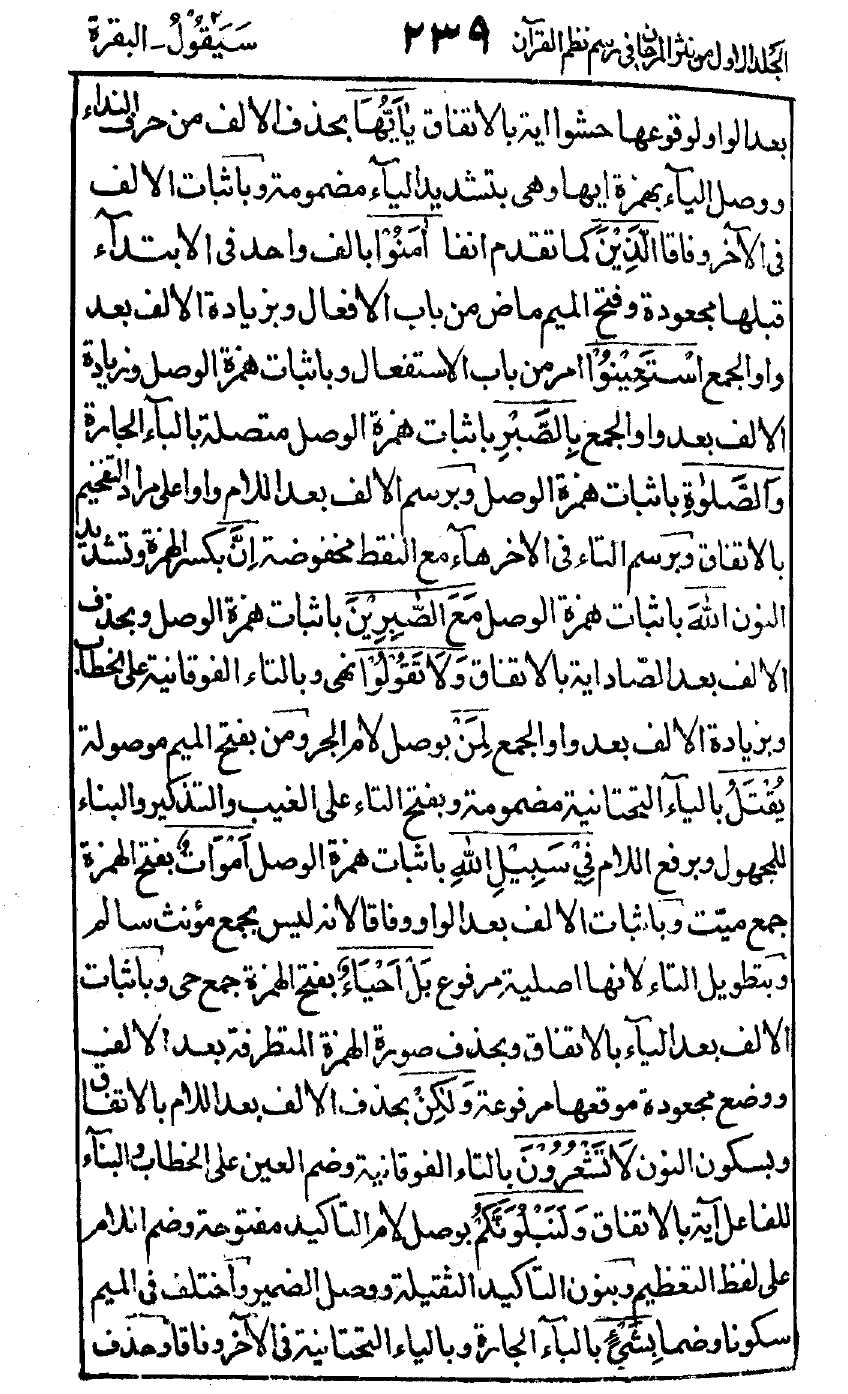 الجلد الاول من نثر المرجان في رسم نظم القرآن ٢٣٩ سَيَقُولُ ـ البقرة ٢
بعد الواو لوقوعها حشوا اية بالاتفاق يٰاَيُّهَا بحذف الالف من حرف النداء
ووصل الياء بهمزة ايها وهى بتشديد الياء مضمومة وباثبات الالف
فى الآخر وفاقا الَّذِيْنَ كما تقدم انفا اٰمَنُوْا بالف واحد فى الابتدآء
قبلها مجعودة وفتح الميم ماض من باب الافعال وبزيادة الالف بعد
واو الجمع اسْتَعِيْنُوْا امر من باب الاستفعال وباثبات همزة الوصل وزيادة
الالف بعد واو الجمع بِالصَّبْرِ باثبات همزة الوصل متصلة بالبآء الجارة
وَالصَّلٰوةِ باثبات همزة الوصل وبرسم الالف بعد اللام واوا على مراد التفخيم
بالاتفاق وبرسم التاء فى الاخر هآء مع النقط مخفوضة اِنَّ بكسر الهمزة وتشديد
النون اللّٰهَ باثبات همزة الوصل مَعَ الصّٰبِرِيْنَ باثبات همزة الوصل وبحذف
الالف بعد الصاد اية بالاتفاق وَلَا تَقُوْلُوْا نهى وبالتاء الفوقانية على الخطاب
وبزيادة الالف بعد واو الجمع لِمَنْ بوصل لام الجر ومن بفتح الميم موصولة
يُقْتَلُ بالياء التحتانية مضمومة وبفتح التاء على الغيب والتذكير والبناء
للمجهول وبرفع اللام فِيْ سَبِيْلِ اللّٰهِ باثبات همزة الوصل اَمْوَاتٌ بفتح الهمزة
جمع ميّت وباثبات الالف بعد الواو وفاقا لانه ليس بجمع مؤنث سالم
وبتطويل التاء لانها اصلية مرفوع بَلْ اَحْيَاءٌ بفتح الهمزة جمع حى وباثبات
الالف بعد الياء بالاتفاق وبحذف صورة الهمزة المتطرفة بعد الالف
ووضع مجعودة موقعها مرفوعة وَلٰكِنْ بحذف الالف بعد اللام بالاتفاق
وبسكون النون لَا تَشْعُرُوْنَ بالتاء الفوقانية وضم العين على الخطاب والبنآء
للفاعل آية بالاتفاق وَلَنَبْلُوَنَّكُمْ بوصل لام التاكيد مفتوحة وضم اللام
على لفظ التعظيم وبنون التاكيد الثقيلة ووصل الضمير واختلف فى الميم
سكونا وضما بِشَيْءٍ بالبآء الجارة وبالياء التحتانية فى الآخر وفاقا وحذف